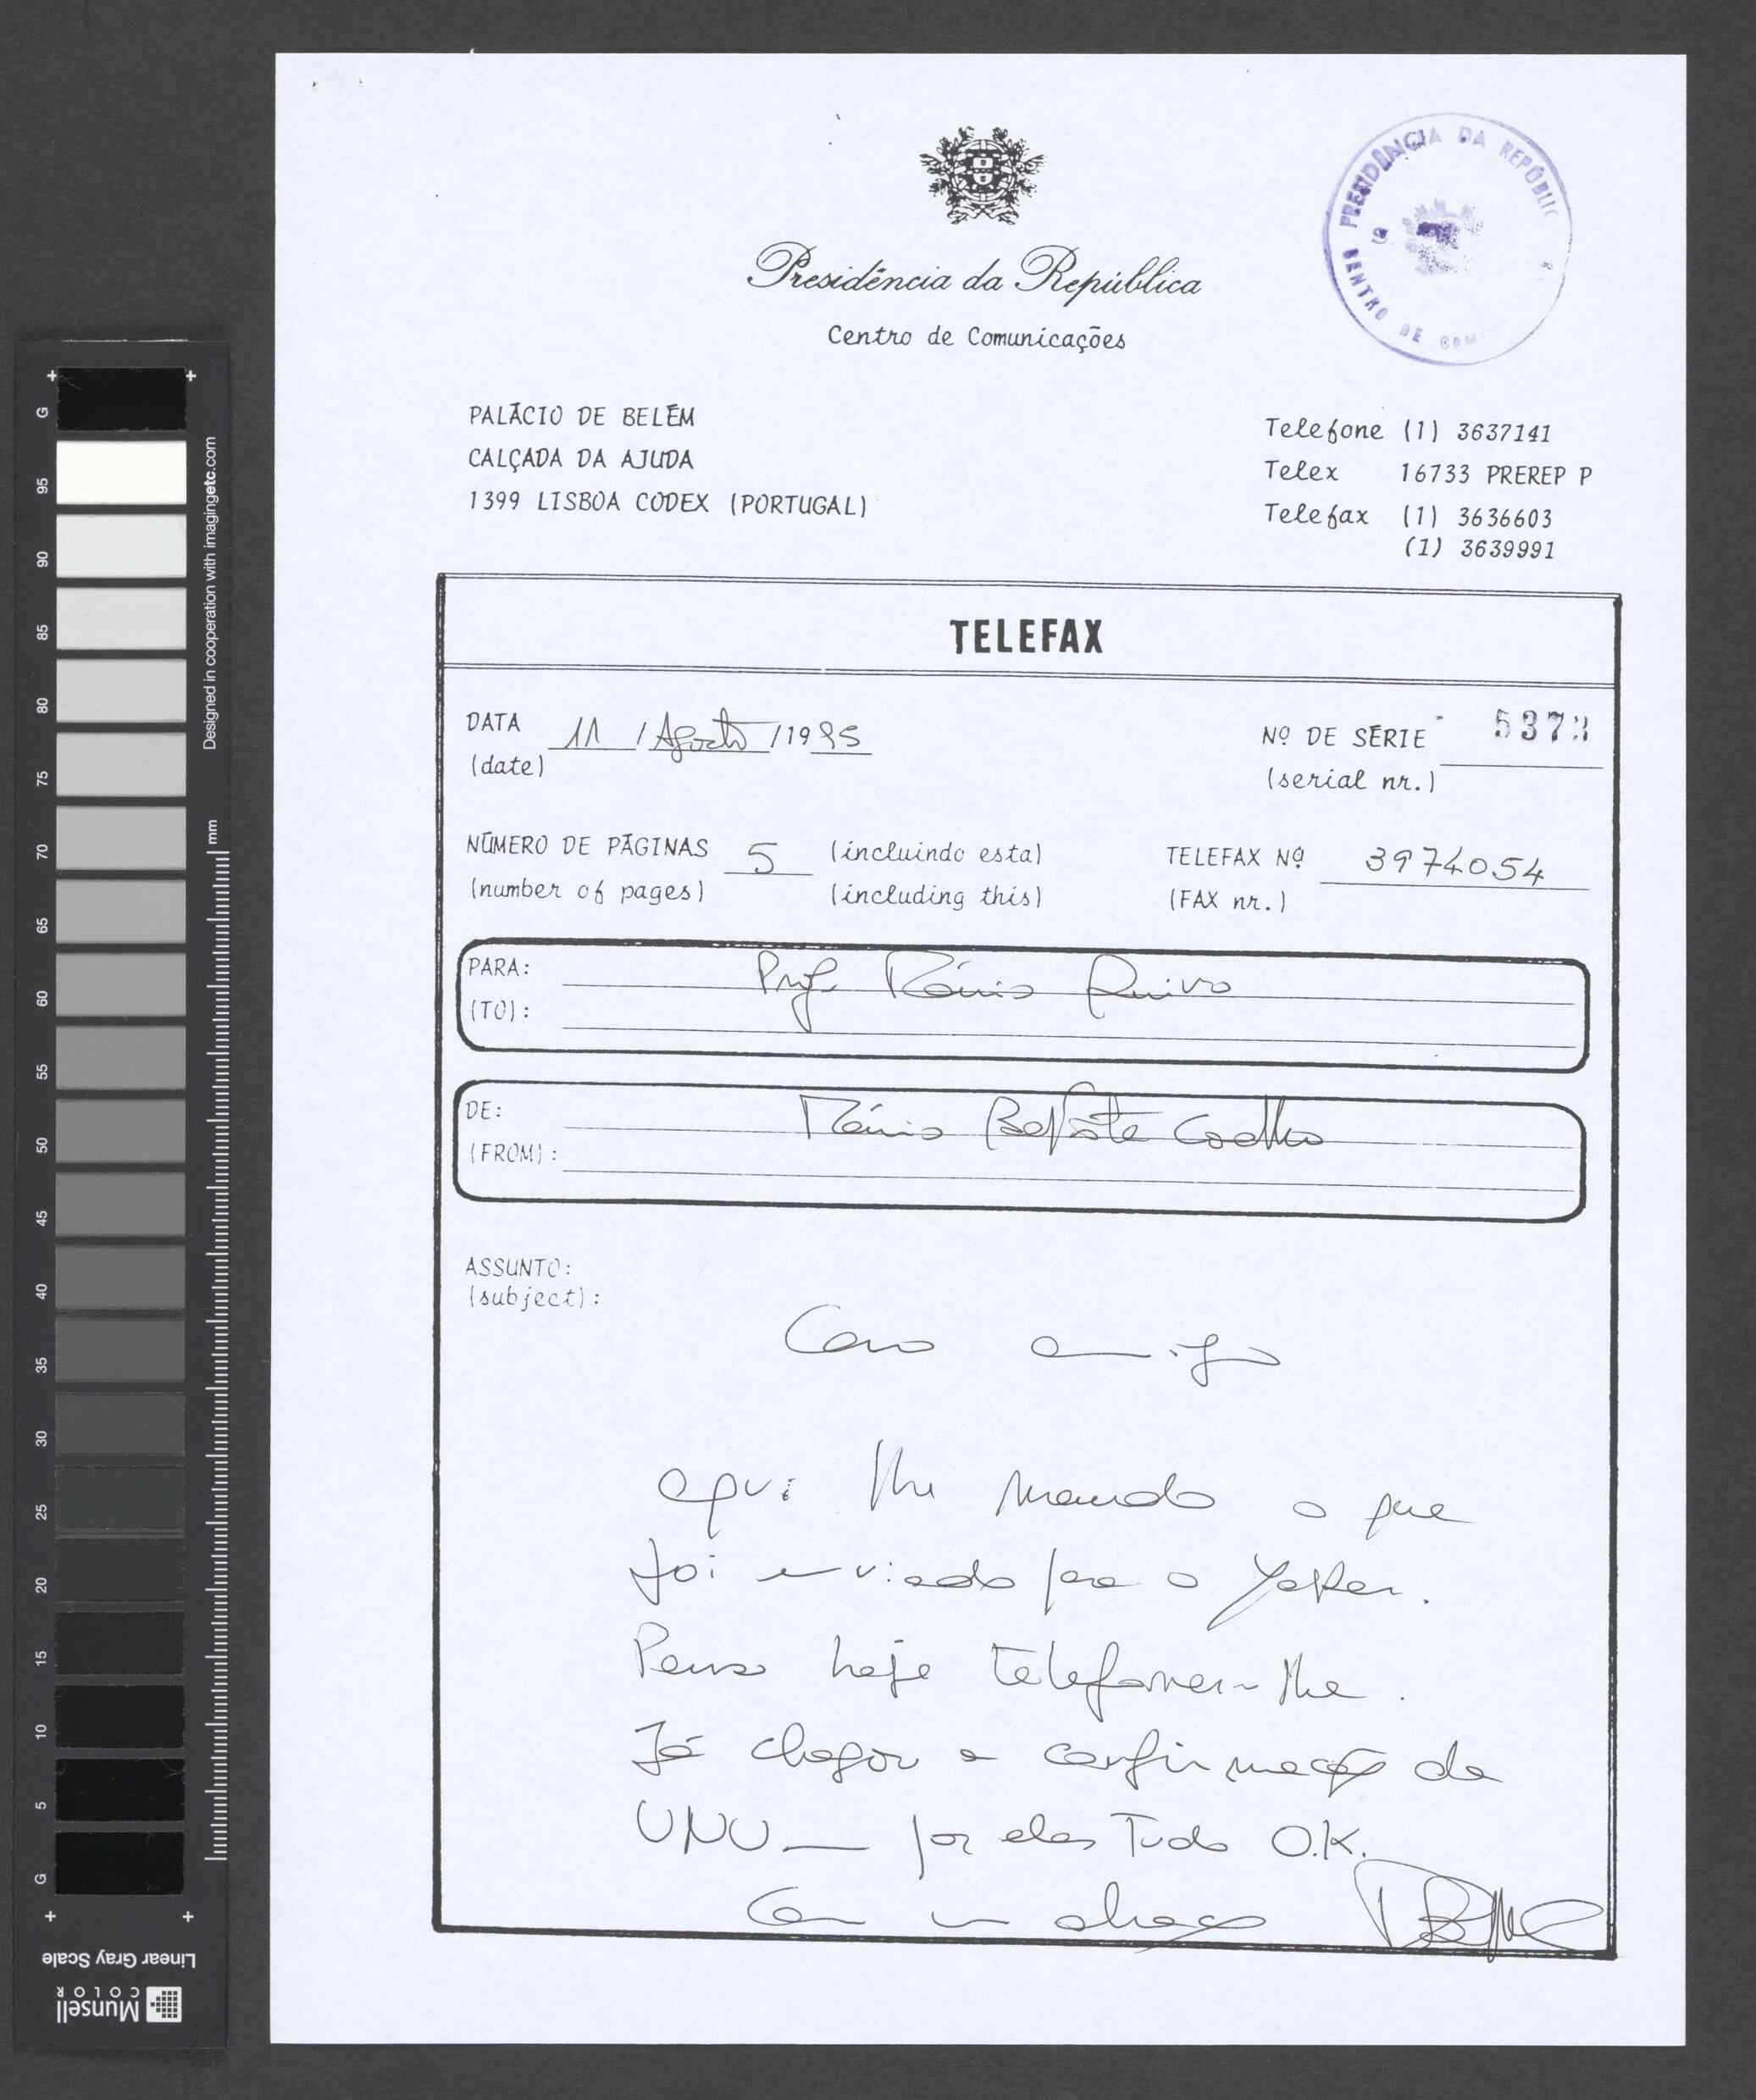 Presidência da República
Centro de Comunicações
PRESIDÊNCIA DA REPÚBLIC
CENTRO DE COM
PALÁCIO DE BELÉM
CALÇADA DA AJUDA
1399 LISBOA CODEX (PORTUGAL)
Telefone (1) 3637141
Telex 16733 PREREP P
Telefax (1) 3636603
(1) 3639991
TELEFAX
DATA 11 / Agosto / 1995
(date)
Nº DE SÉRIE 5373
(serial nr.)
NÚMERO DE PÁGINAS 5 (incluindo esta)
(number of pages) (including this)
TELEFAX Nº 3974054
(FAX nr.)
PARA: Prof. Mário Ruivo
(TO):
DE: Mário Baptista Coelho
(FROM):
ASSUNTO:
(subject):
Caro amigo
aqui lhe mando o que
foi enviado para o Yasker.
Penso hoje telefonar-lhe.
Já chegou a confirmação da
UNU — por eles tudo O.K.
Com um abraço
G 95 90 85 80 75 70 65 60 55 50 45 40 35 30 25 20 15 10 5 G
Designed in cooperation with imagingetc.com
mm
Linear Gray Scale
Munsell
COLOR